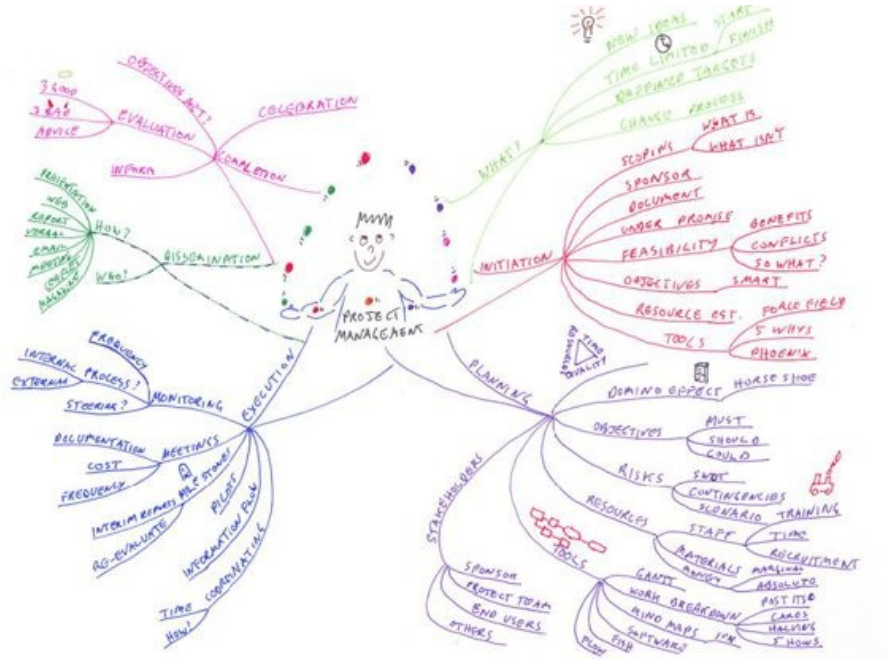 PROJECT
MANAGEMENT
WHAT?
NEW IDEAS
TIME LIMITED
START
FINISH
DEFINED TARGETS
CHANGE PROCESS
INITIATION
SCOPING
WHAT IS
WHAT ISN'T
SPONSOR
DOCUMENT
UNDER PROMISE
FEASIBILITY
BENEFITS
CONFLICTS
SO WHAT?
OBJECTIVES
SMART
RESOURCE EST.
TOOLS
FORCE FIELD
5 WHYS
PHOENIX
PLANNING
TIME
QUALITY
RESOURCE
DOMINO EFFECT
HORSE SHOE
OBJECTIVES
MUST
SHOULD
COULD
RISKS
SWOT
CONTINGENCIES
SCENARIO
RESOURCES
STAFF
TRAINING
TIME
RECRUITMENT
MATERIALS
MONEY
MARGINAL
ABSOLUTE
TOOLS
GANTT
WORK BREAKDOWN
POST ITS
CARDS
HALVING
5 HOWS
MIND MAPS
SOFTWARE
FISH
FLOW
STAKEHOLDERS
SPONSOR
PROJECT TEAM
END USERS
OTHERS
EXECUTION
MONITORING
FREQUENCY
PROCESS?
INTERNAL
EXTERNAL
STEERING?
MEETINGS
DOCUMENTATION
COST
FREQUENCY
MILESTONES
INTERIM REPORTS
RE-EVALUATE
PILOTS
INFORMATION FLOW
COORDINATING
TIME
HOW?
DISSEMINATION
HOW?
PRESENTATION
WEB
REPORT
VERBAL
EMAIL
MEETING
MAGAZINE
WHO?
COMPLETION
CELEBRATION
OBJECTIVES MET?
EVALUATION
3 GOOD
3 BAD
ADVICE
INFORM